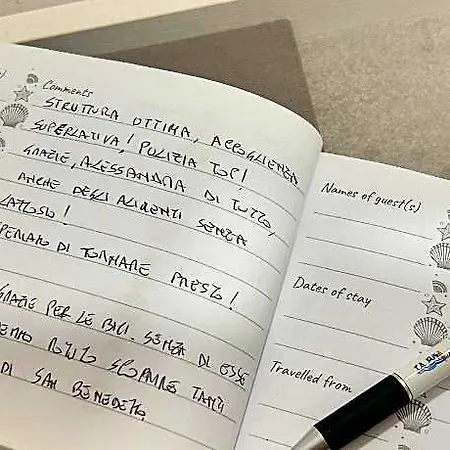 Comments
STRUTTURA OTTIMA, ACCOGLIENZA
SUPERLATIVA! PULIZIA TOP!
GRAZIE, ALESSANDRA DI TUTTO,
ANCHE DEGLI ALIMENTI SENZA
LATTOSIO!
DI TORNARE PRESTO!
GRAZIE PER LE BICI. SENZA DI ESSE
POTUTO SCOPRIRE TANTI
DI SAN BENEDETTO.
Names of guest(s)
Dates of stay
Travelled from